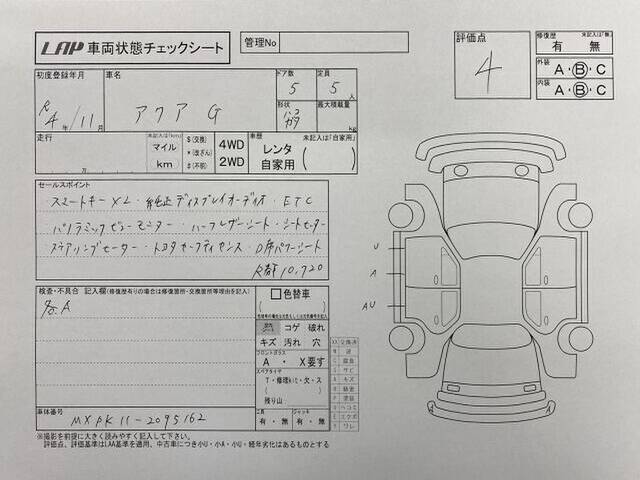 LAP 車両状態チェックシート
管理No
評価点
4
修復歴 未記入は「無」
有 無
外装 A・B・C
内装 A・B・C
初度登録年月
R 4年/11月
車名
アクア G
ドア数
5
定員
5人
形状
最大積載量
kg
走行
未記入は「km」
万
マイル
km
$(交換)
*(改ざん)
#(不明)
4WD
2WD
車歴 未記入は「自家用」
レンタ
自家用 ( )
セールスポイント
・スマートキーX2・純正ディスプレイオーディオ・ETC
パノラミックビューモニター・ハーフレザーシート・シートヒーター
ステアリングヒーター・トヨタセーフティセンス・D席パワーシート
10,720
検査・不具合 記入欄(修復歴有りの場合は修復箇所・交換箇所等理由を記入)
各A
色替車
( )
コゲ 破れ
キズ 汚れ 穴
フロントガラス
A ・ X要す
スペアタイヤ
T・修理キット・欠・ス
( )
残り山
工具
有・無
ジャッキ
有・無
XX 交換済
U ヘコミ
E エクボ
Y ワレ
U
A
AU
A
A
車体番号
MXPK11-2095162
※撮影を前提に大きく読みやすく記入して下さい。
評価点、評価基準はLAA基準を適用、中古車につき小U・小A・小U・経年劣化はあるものとする